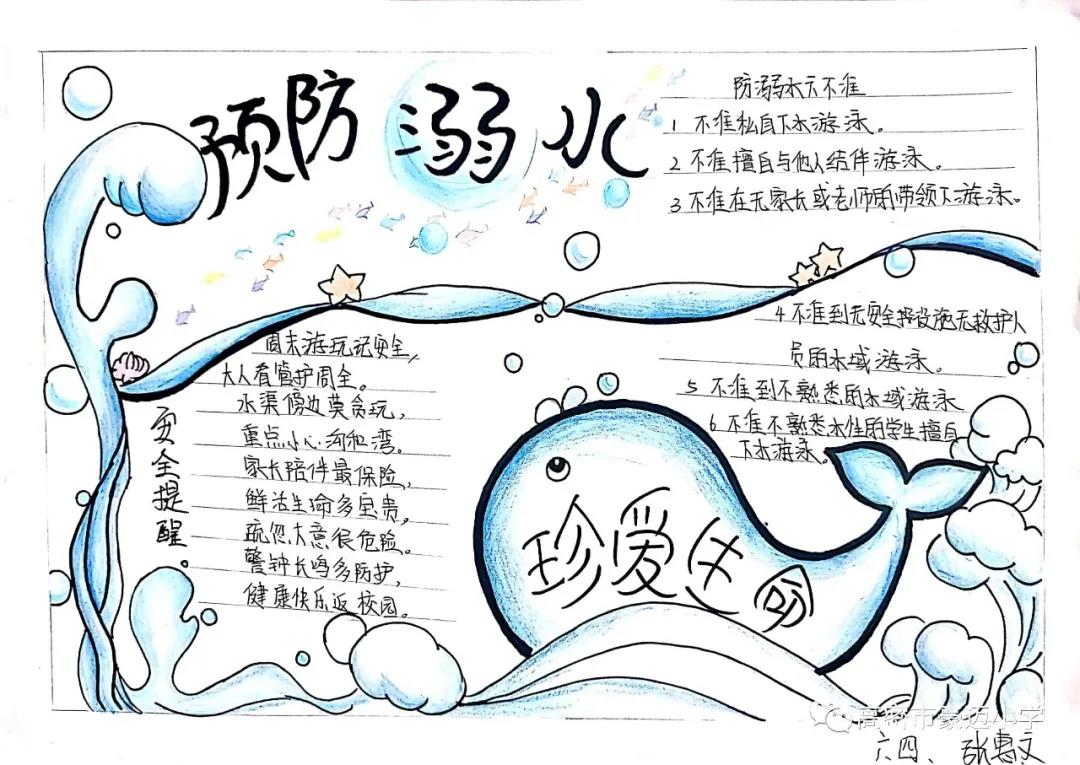 预防溺水
防溺水六不准
1 不准私自下水游泳。
2 不准擅自与他人结伴游泳。
3 不准在无家长或老师的带领下游泳。
4 不准到无安全设施无救护人
员的水域游泳。
5 不准到不熟悉的水域游泳
6 不准不熟悉水性的学生擅自
下水游泳。
安全提醒。
周末游玩记安全,
大人看管护周全。
水渠傍边莫贪玩,
重点小心河和湾。
家长陪伴最保险,
鲜活生命多宝贵,
疏忽大意很危险。
警钟长鸣多防护,
健康快乐返校园。
珍爱生命
高密市豪迈小学
六四、 张惠文